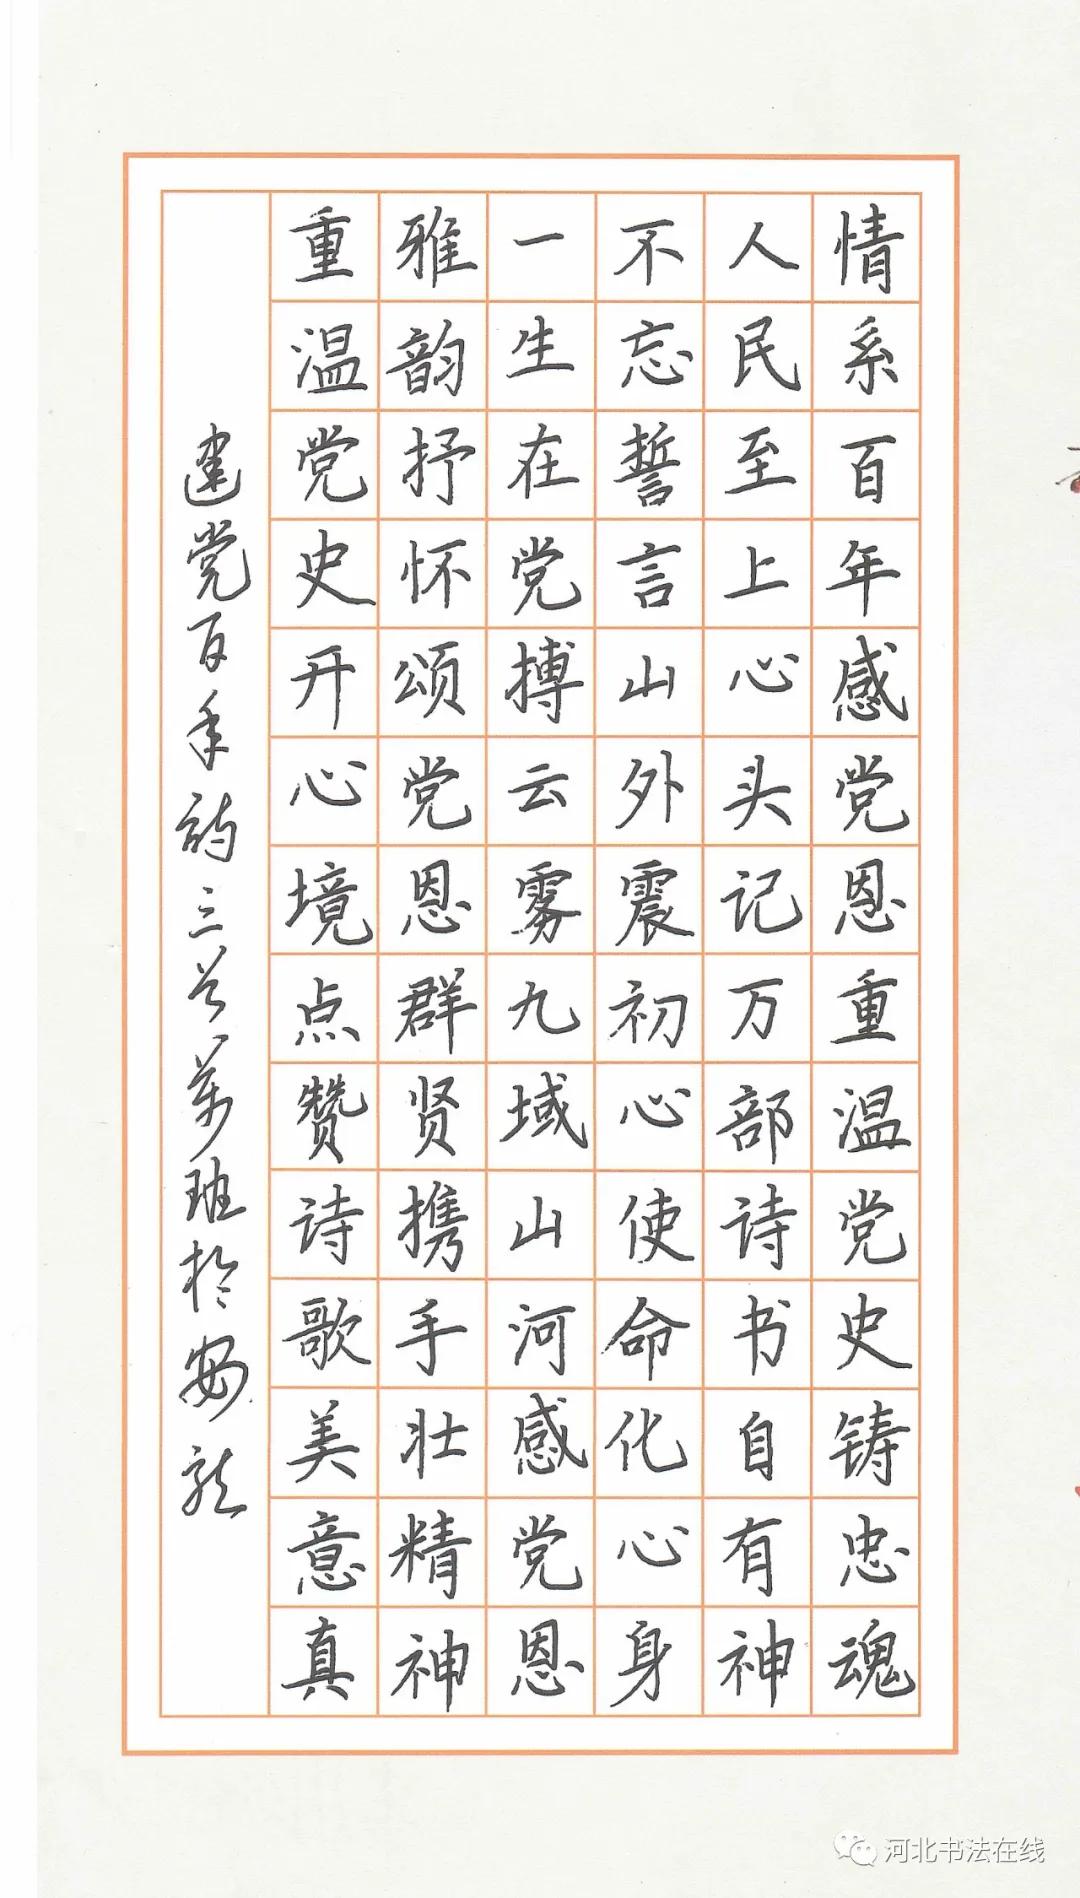 情系百年感党恩重温党史铸忠魂
人民至上心头记万部诗书自有神
不忘誓言山外震初心使命化心身
一生在党搏云雾九域山河感党恩
雅韵抒怀颂党恩群贤携手壮精神
重温党史开心境点赞诗歌美意真
建党百年诗三首 万班于安龙
河北书法在线